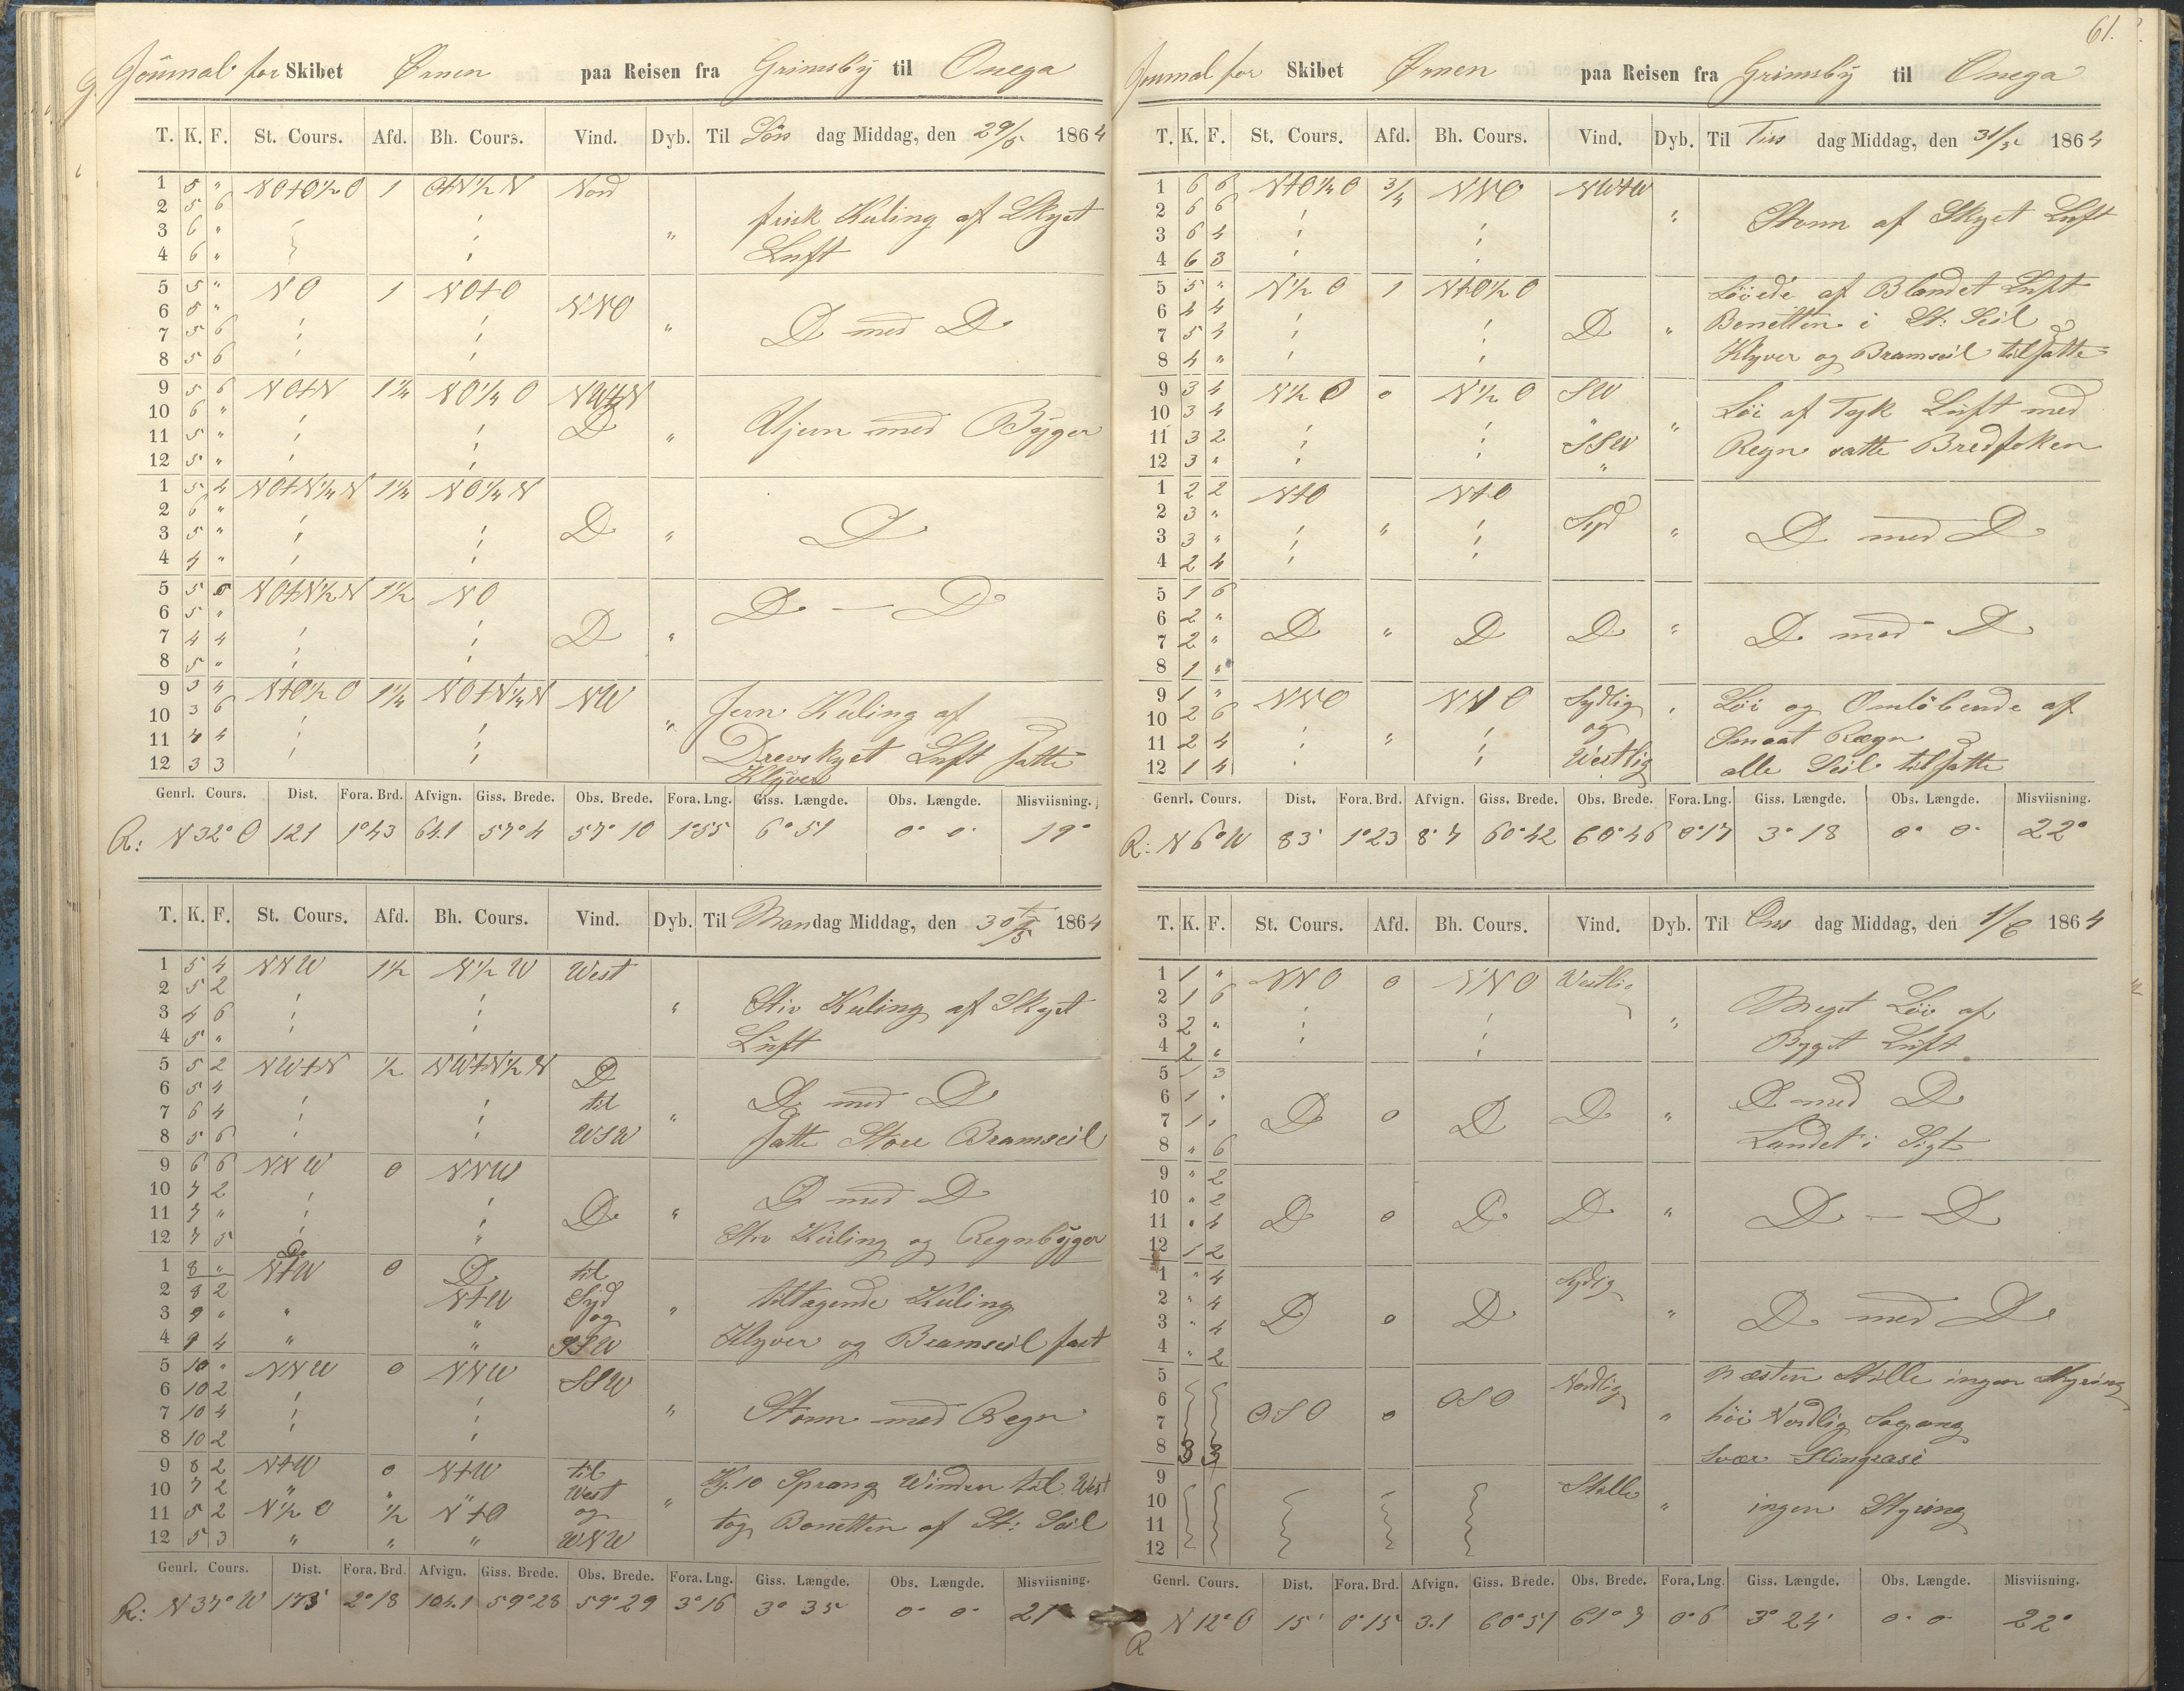 Journal for Skibet Ørnen paa Reisen fra Grimsby til Onega
T. K. F. St. Cours. Afd. Bh. Cours. Vind. Dyb. Til Søn dag Middag, den 29/5 1864
1 5 " NOtO½O 1 OtN½N Nord
2 5 6 frisk Kuling af Skyet
3 6 " "
4 6 " Luft
5 5 " NO 1 NOtO
6 5 " NNO
7 5 6 " D med D
8 5 6
9 5 6 NOtN 1¼ NO¼O NWtN
10 6 " D Ujevn med Byger
11 5 " "
12 5 "
1 5 4 NOtN¼N 1¼ NO¼N
2 6 "
3 5 " D " D
4 4 "
5 5 0 NOtN½N 1½ NO D — D
6 5 "
7 4 4 D "
8 5 "
9 3 4 NtO½O 1¼ NOtN¼N NW Jevn Kuling af
10 3 6 "
11 4 4 Drevskyet Luft satte
12 3 3 Klyver
Genrl. Cours. Dist. Fora. Brd. Afvign. Giss. Brede. Obs. Brede. Fora. Lng. Giss. Længde. Obs. Længde. Misviisning.
R: N 32° O 121 1°43 64.1 57°4 57°10 1°55 6°51 0° 0' 19°
T. K. F. St. Cours. Afd. Bh. Cours. Vind. Dyb. Til Mandag Middag, den 30/5 1864
1 5 4 NNW 1½ N½W West
2 5 2
3 4 6 " Stiv Kuling af Skyet
4 5 " Luft
5 5 2 NWtN ½ NWtN½N D
6 5 4 D med D
7 6 4 til "
8 5 6 WSW satte Store Bramseil
9 6 6 NNW 0 NNW
10 7 2 D med D
11 7 " D "
12 7 5 Stiv Kuling og Regnbyger
D
1 8 " NtW 0 D til
2 8 2 NtW Syd " tiltagende Kuling
3 9 " " " og
4 9 4 " " SSW Klyver og Bramseil fast
5 10 " NNW 0 NNW SSW
6 10 2
7 10 4 " Storm med Regn
8 10 2
9 8 2 NtW 0 NtW til Kl. 10 Sprang Winden til West
10 7 2 " " " West "
11 5 2 N½O ½ NtO og tog Bonetten af St: Seil
12 5 3 " " " WNW
Genrl. Cours. Dist. Fora. Brd. Afvign. Giss. Brede. Obs. Brede. Fora. Lng. Giss. Længde. Obs. Længde. Misviisning.
R: N 37° W 173' 2°18 104.1 59°28 59°29 3°16 3° 35 0° 0' 21°
61.
Journal for Skibet Ørnen paa Reisen fra Grimsby til Onega
T. K. F. St. Cours. Afd. Bh. Cours. Vind. Dyb. Til Tirs dag Middag, den 31/5 1864
1 6 6 NtO¼O ¾ NNO NWtW
2 6 6 " Storm af Skyet Luft
3 6 4
4 6 3
5 5 " N½O 1 NtO½O Løiede af Blandet Luft
6 4 4 Bonetten i St: Seil
7 5 4 D "
8 4 " Klyver og Bramseil tilsatte
9 3 4 N½O 0 N½O SW
10 3 4 " Løi af Tyk Luft med
11 3 2 " SSW Regn satte Bredfoken
12 3 " "
1 2 2 NtO NtO
2 3 " Syd
3 3 " " " D med D
4 2 4
5 1 6
6 2 " D " D D " D med D
7 2 "
8 1 "
9 1 " NNO NNO Sydlig " Løi og Omløbende af
10 2 6 og Smaat Regn
11 2 4 "
12 1 4 Westlig alle Seil tilsatte
Genrl. Cours. Dist. Fora. Brd. Afvign. Giss. Brede. Obs. Brede. Fora. Lng. Giss. Længde. Obs. Længde. Misviisning.
R: N 6° W 83' 1°23 8.7 60°42 60°46 0°17 3° 18 0° 0' 22°
T. K. F. St. Cours. Afd. Bh. Cours. Vind. Dyb. Til Ons dag Middag, den 1/6 1864
1 1 " NNO 0 NNO Westlig
2 1 6 Meget Løi af
3 2 " "
4 2 " Byget Luft
5 1 3
6 1 " D med D
7 1 " D 0 D D "
8 " 6 Landet i Sigte
9 " 2
10 " 2 D 0 D D " D — D
11 " 4
12 1 2
1 " 4 Sydlig
2 " 4
3 " 4 D 0 D " D med D
4 " 2
5 Næsten Stille ingen Styring
6 OSO Nordlig
7 OSO 0 " høi Nordlig Søgang
8 3 3 Svær Slingrasie
9 Stille
10 " ingen Styring
11
12
Genrl. Cours. Dist. Fora. Brd. Afvign. Giss. Brede. Obs. Brede. Fora. Lng. Giss. Længde. Obs. Længde. Misviisning.
R N 12° O 15' 0°15 3.1 60°51 61°7 0°6 3° 24' 0° 0' 22°